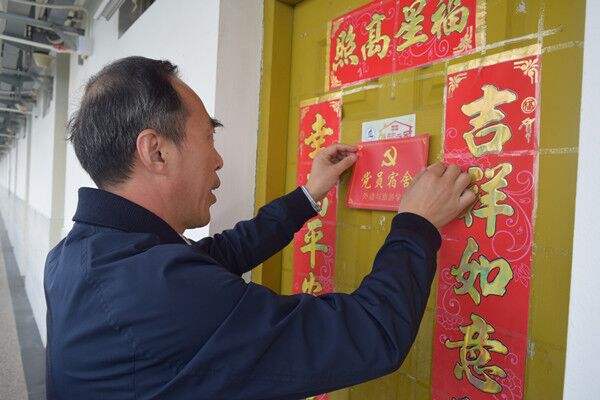 福星高照
吉祥如意
平安
党员宿舍